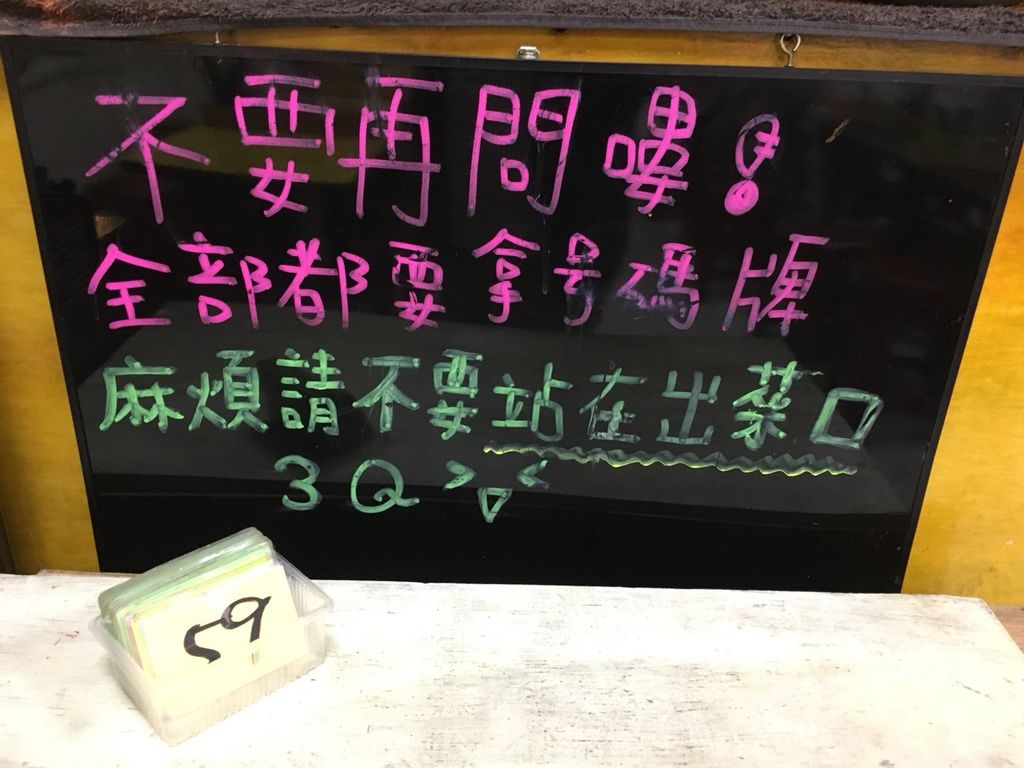 不要再問嘍!
全部都要拿号碼牌
麻煩請不要站在出菜口
3Q >▽<
59